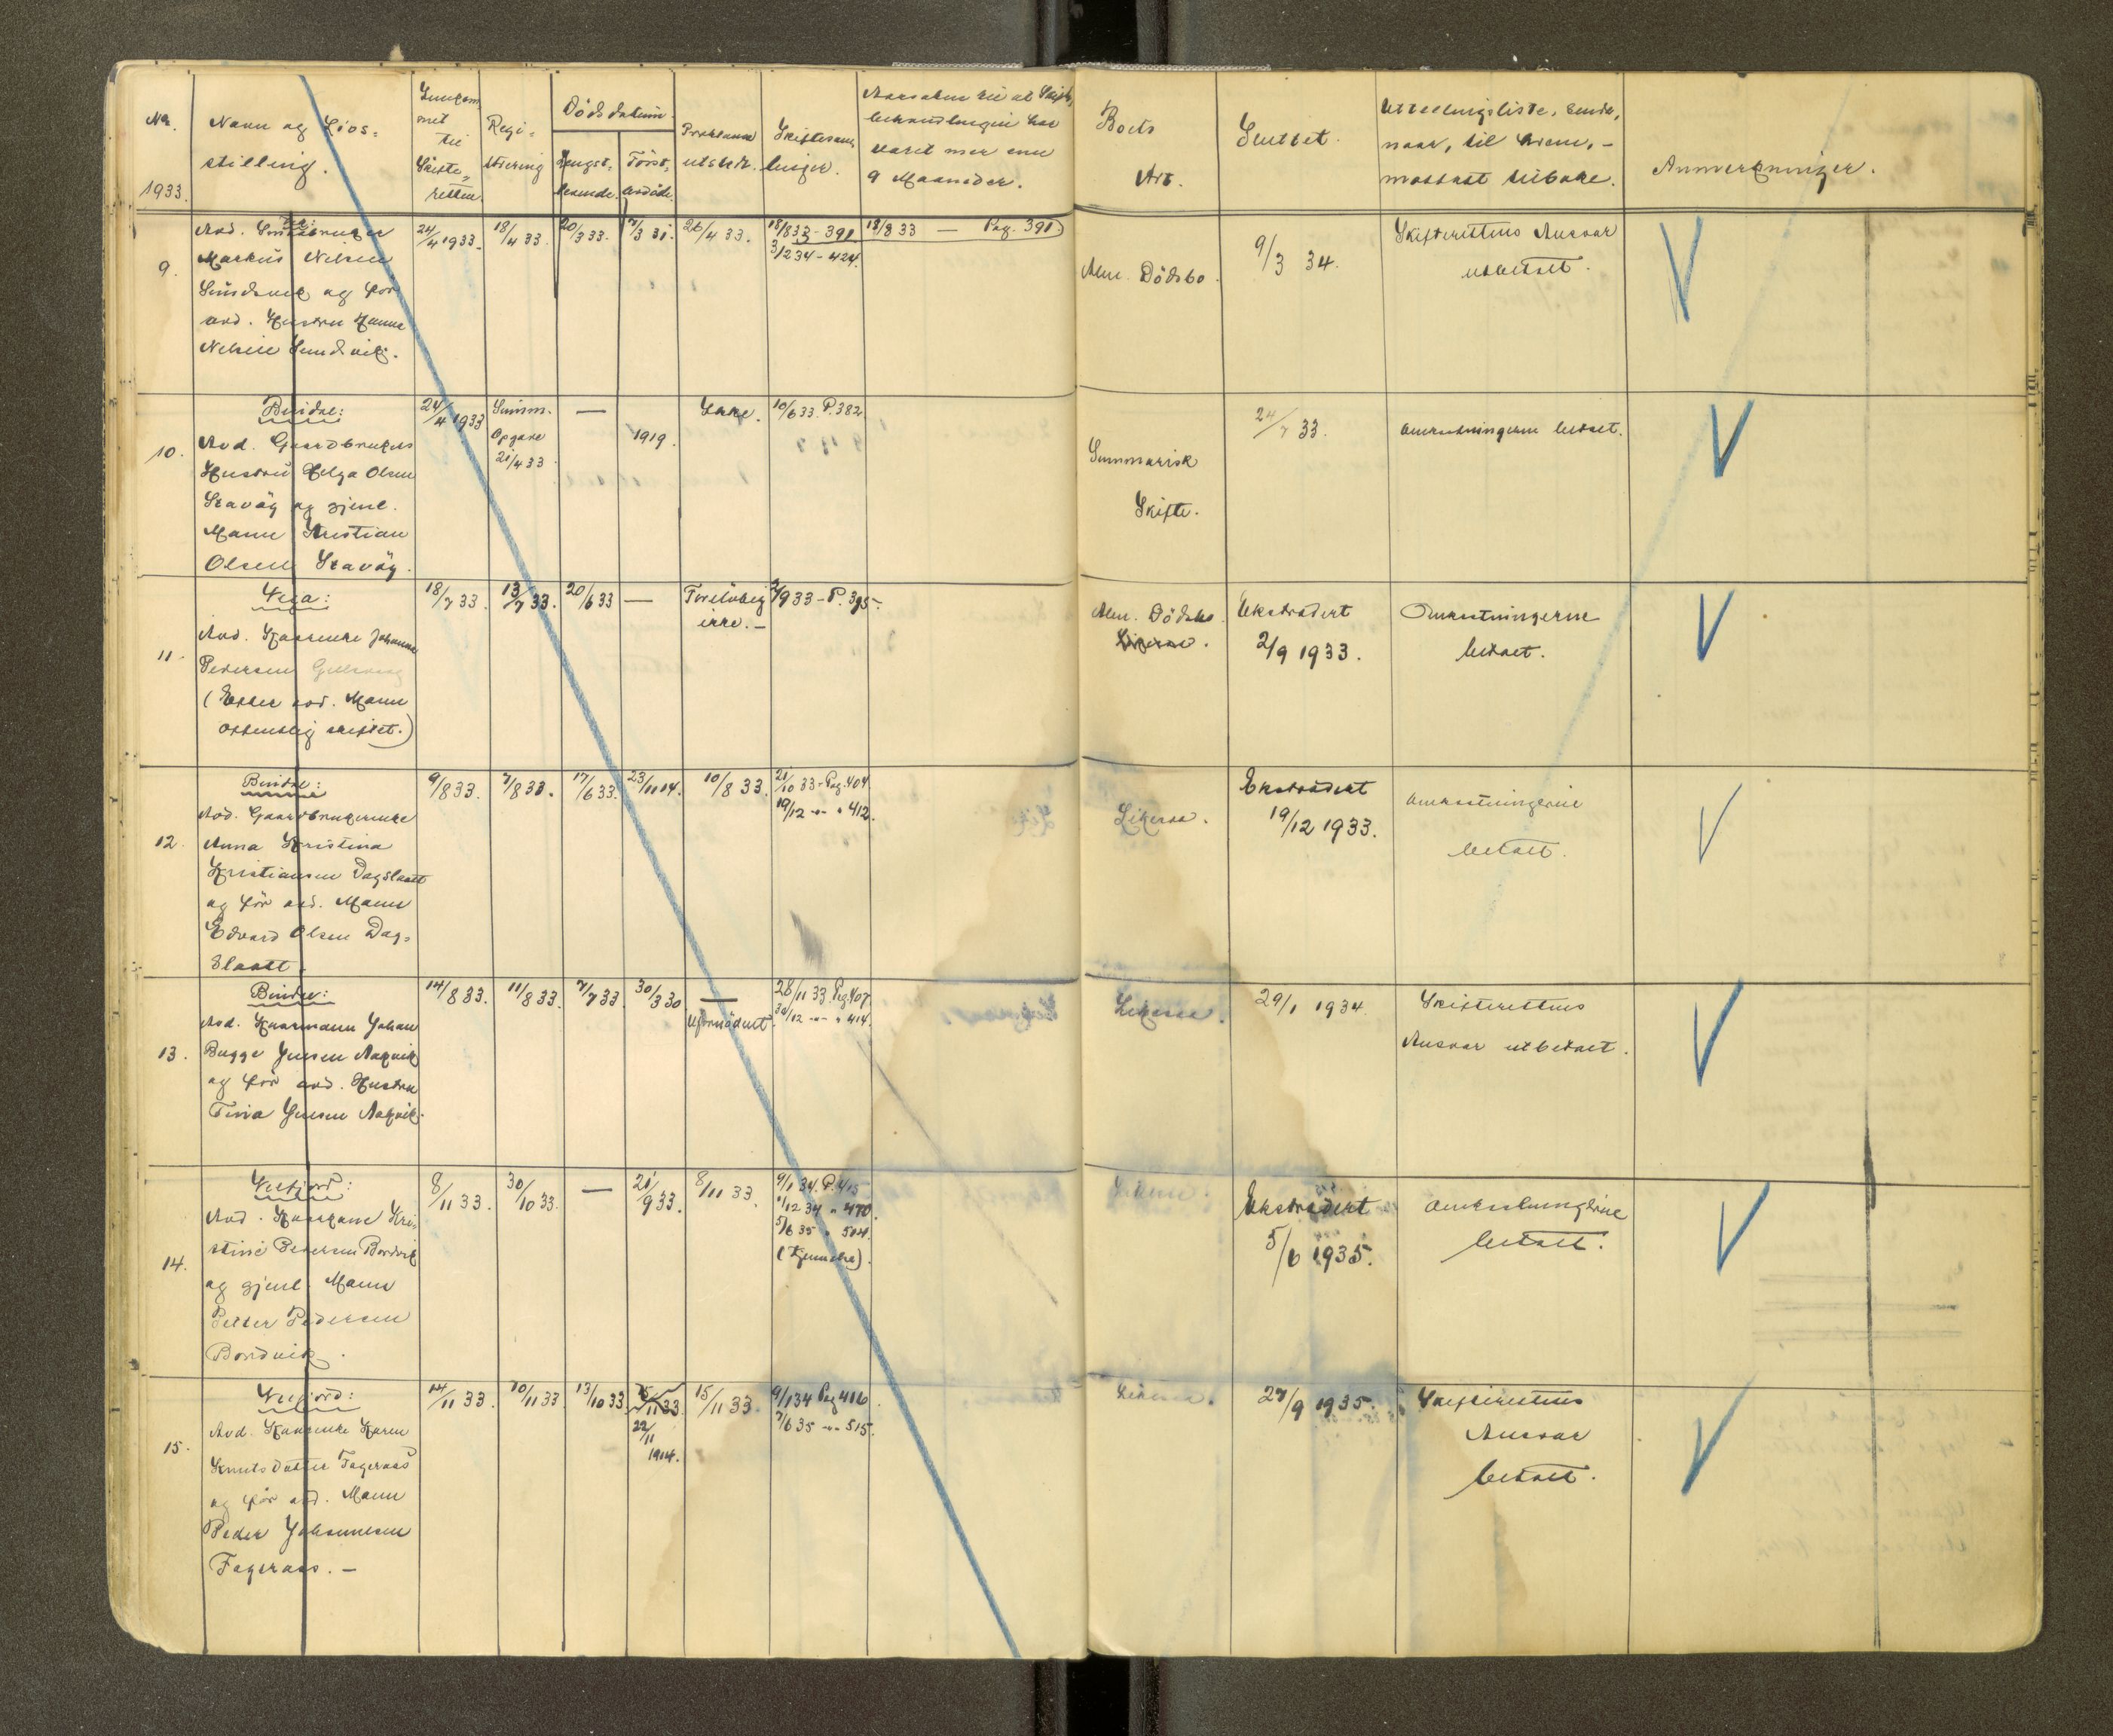 Nr.
1933.
Navn og Livs-
stilling.
Innkom-
met
til
Skifte-
retten.
Regi-
strering
Dödsdatum
Lengst-
levende.
Först-
avdöde.
Proklama
utstedt.
Skiftesam-
linger.
behandlingen har
varet mer enn
9 Maaneder.
Boets
Art.
Sluttet.
Utdelingsliste, sendt,
naar, til hvem, -
mottatt tilbake.
Anmerkninger.
9.
Avd.
Markus Nilsen
Sundsvik og før
avd. Hustru Hanna
Nilsen Sundsvik.
24/4 1933.
18/4 33.
20/3 33.
7/3 31.
26/4 33.
18/8 33 - 391
3/2 34 - 424.
18/8 33 — Pag. 391.
Alm. Dödsbo.
9/3 34.
Skifterettens Ansvar
utbetalt.
10.
Bindal:
Avd. Gaardbrukers
Hustru Helga Olsen
Skavög og gjenl.
Mann Kristian
Olsen Skavög.
24/4 1933
Summ.
Opgave
21/4 33
—
1919.
10/6 33. P. 382
Summarisk
Skifte.
24/7 33.
Omkostningerne betalt.
11.
Vega:
Avd. Kaarenke Johanna
Pedersen
(Efter avd. Mann
offentlig skiftet.)
18/7 33.
13/7 33.
20/6 33
—
Foreløbig
ikke. -
2/9 33 - P. 395.
Alm. Dödsbo.
Ekstradert
2/9 1933.
Omkostningerne
betalt.
12.
Bindal:
Avd. Gaardbrukerenke
Anna Kristina
Kristiansen Dagslaatt
og før avd. Mann
Edvard Olsen Dag-
slaatt.
9/8 33.
7/8 33.
17/6 33.
23/11 14.
10/8 33.
21/10 33 - Pag. 404
19/12 -"- " 412.
Likesaa.
Ekstradert
19/12 1933.
Omkostningerne
betalt.
13.
Bindal:
Avd. Kaarmann Johan
Bugge Jensen Aakvik
og før avd. Hustru
Tina Jensen Aakvik.
14/8 33.
11/8 33.
7/7 33
30/3 30
—
Ufornödent.
28/11 33. Pag 407.
30/12 -"- " 414.
Likesaa.
29/1 1934.
Skifterettens
Ansvar utbetalt.
14.
Velfjord:
Avd. Kaarkone Kri-
stine Pedersen Bordvik
og gjenl. Mann
Petter Pedersen
Bordvik.
8/11 33.
30/10 33.
—
21/9 33.
8/11 33.
9/1 34. P. 415
1/12 34 " 470.
5/6 35 " 504.
Likesaa.
Ekstradert
5/6 1935.
Omkostningerne
betalt.
15.
Velfjord:
Avd. Kaarenke Karen
Knutsdatter Fageraas
og før avd. Mann
Peder Johannesen
Fageraas. -
14/11 33.
10/11 33
13/10 33
22/11
1914.
15/11 33.
9/1 34 Pag 416
7/6 35 -"- 515.
Likesaa.
27/9 1935.
Skifterettens
Ansvar
betalt.